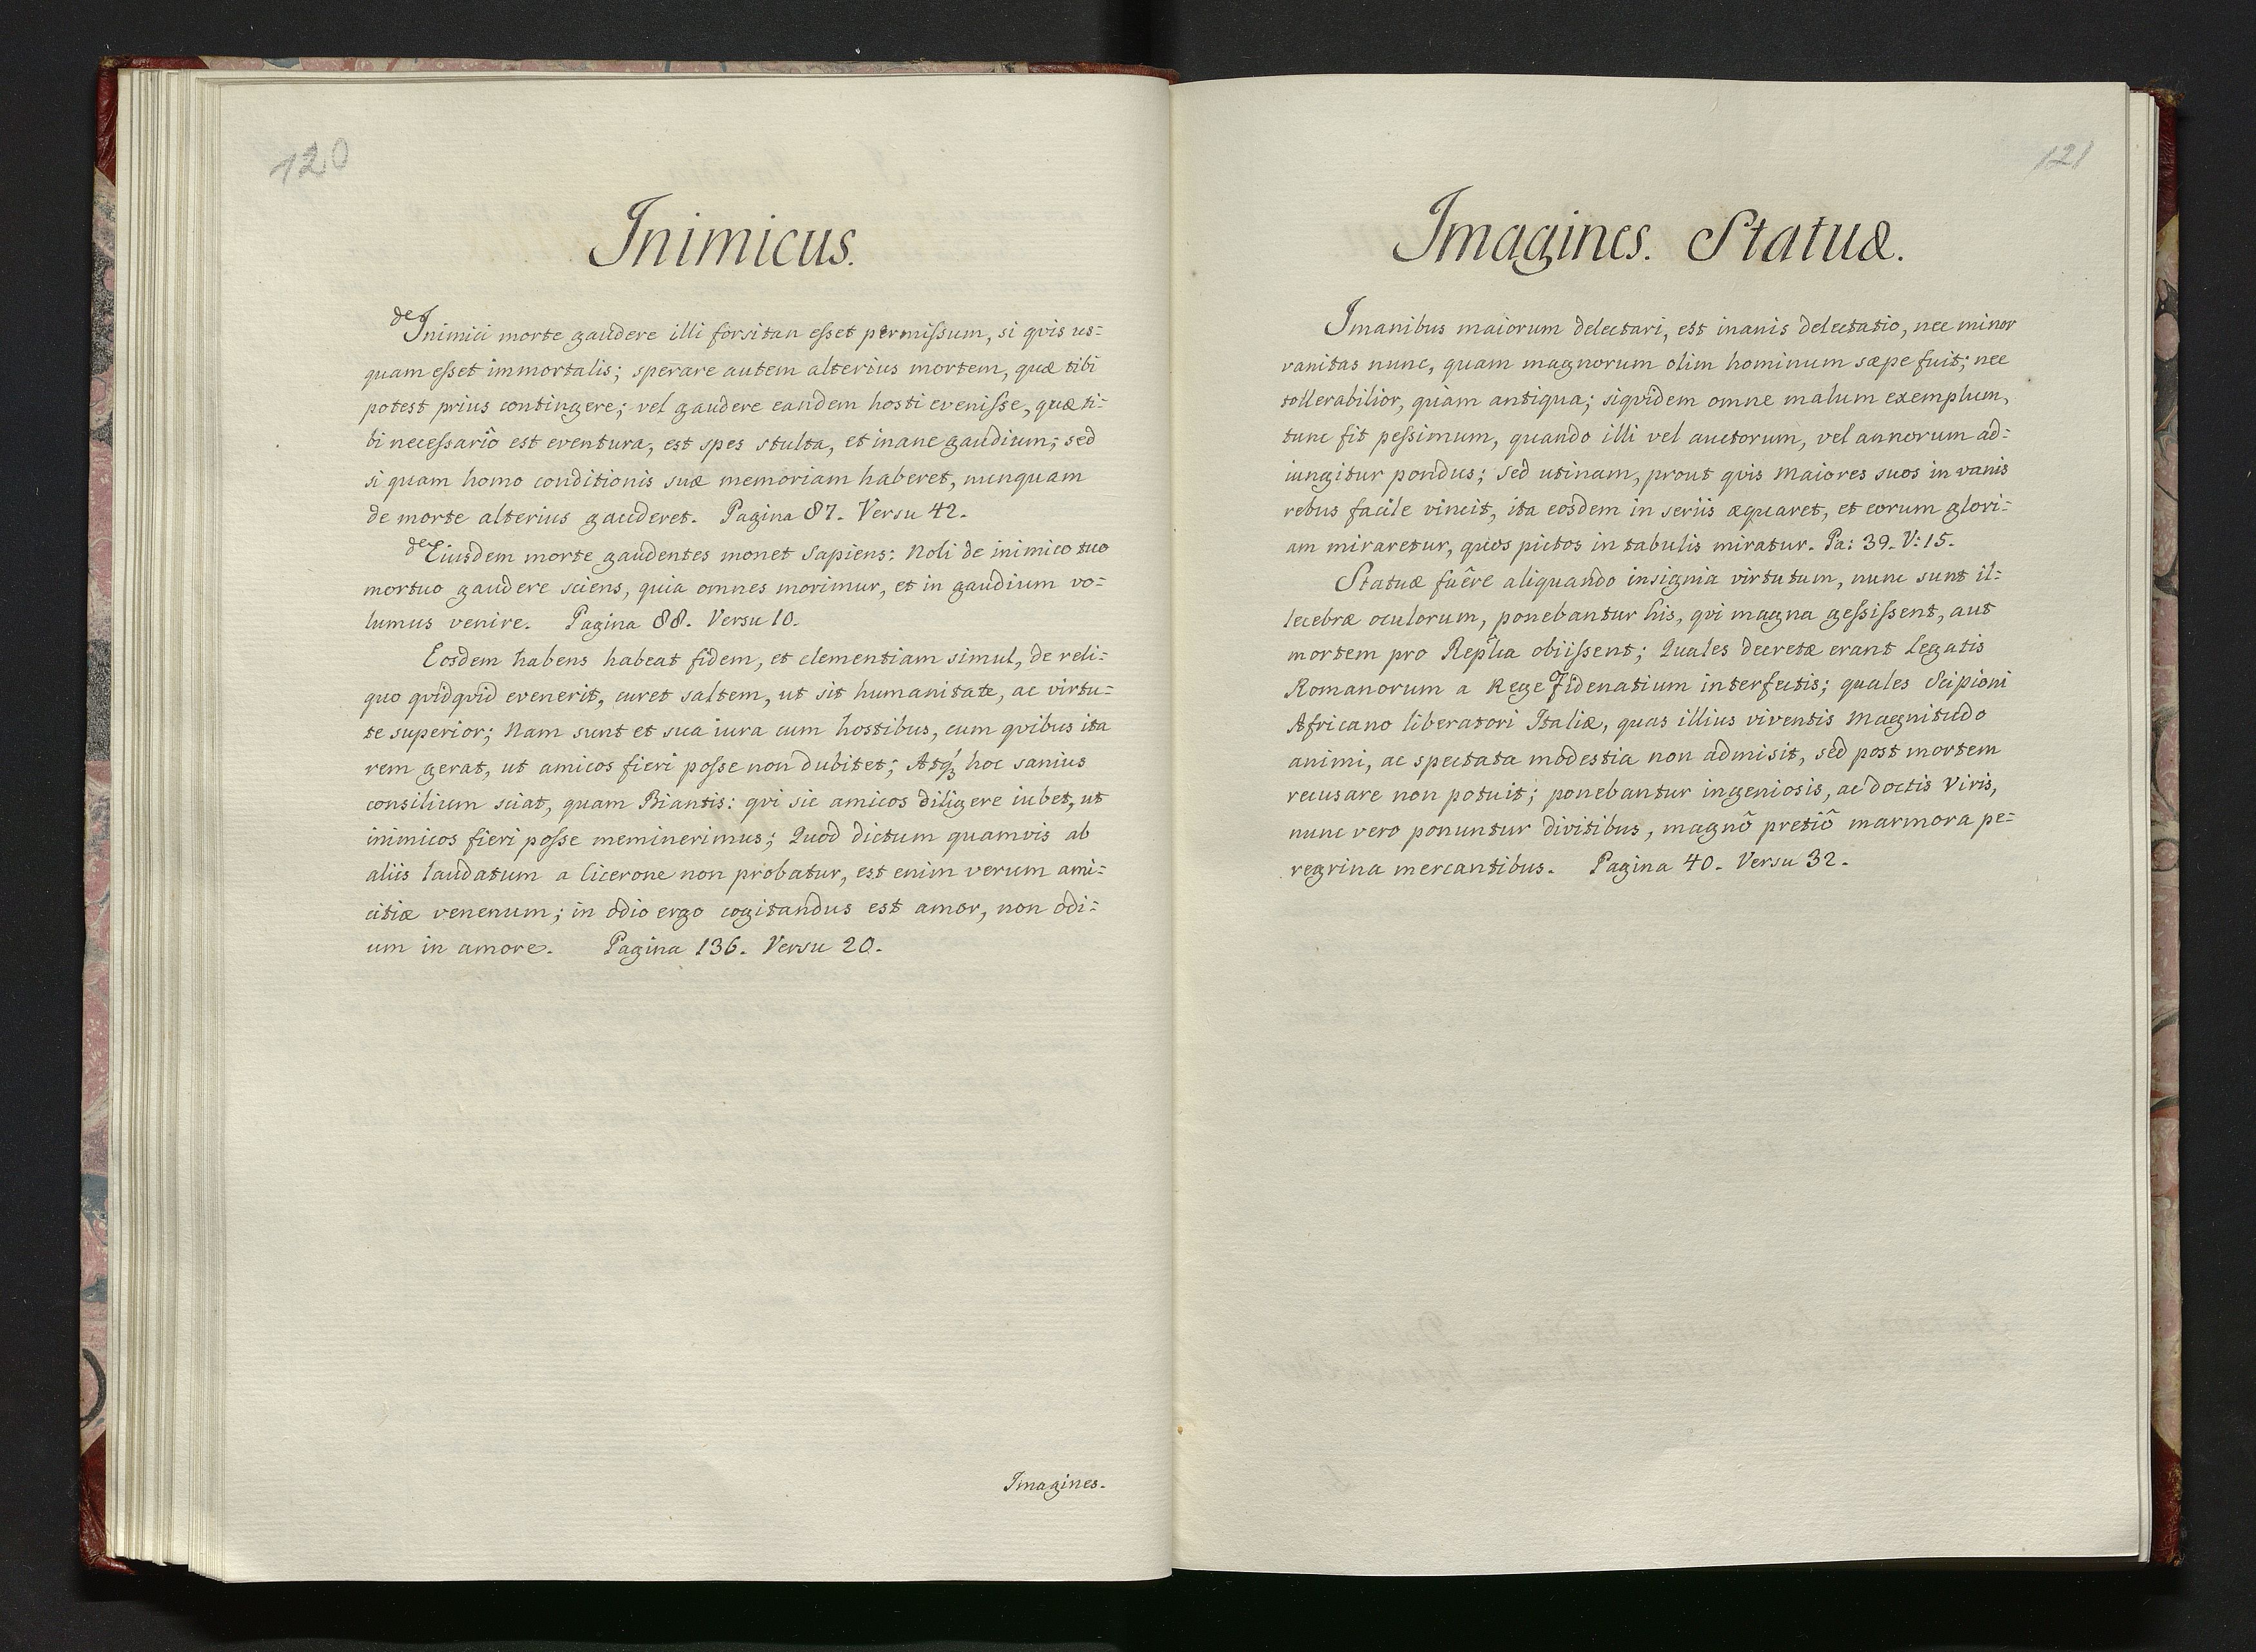 120
Inimicus.
de Inimici morte gaudere illi forsitan eſset permiſsum, si qvis us=
quam eſset immortalis; sperare autem alterius mortem, quæ tibi
potest prius contingere; vel gaudere eandem hosti eveniſse, quæ ti=
bi neceſsariò est eventura, est spes stulta, et inane gaudium; sed
si quam homo conditionis suæ memoriam haberet, nunquam
de morte alterius gauderet. Pagina 87. Versu 42.
de Eiusdem morte gaudentes monet Sapiens: Noli de inimico tuo
mortuo gaudere sciens, quia omnes morimur, et in gaudium vo=
lumus venire. Pagina 88. Versu 10.
Eosdem habens habeat fidem, et clementiam simul, de reli=
quo qvidqvid evenerit, curet saltem, ut sit humanitate, ac virtu=
te superior; Nam sunt et sua iura cum hostibus, cum qvibus ita
rem gerat, ut amicos fieri poſse non dubitet; Atq́ꝫ hoc sanius
consilium sciat, quam Biantis: qvi sic amicos diligere iubet, ut
inimicos fieri poſse meminerimus; Quod dictum quamvis ab
aliis laudatum a Cicerone non probatur, est enim verum ami=
citiæ venenum; in odio ergo cogitandus est amor, non odi=
um in amore. Pagina 136. Versu 20.
Imagines.
121
Imagines. Statuæ.
Imanibus maiorum delectari, est inanis delectatio, nec minor
vanitas nunc, quam magnorum olim hominum sæpe fuit; nec
tollerabilior, quam antiqua; siqvidem omne malum exemplum,
tunc fit peſsimum, quando illi vel auctorum, vel annorum ad=
iungitur pondus; sed utinam, prout qvis Maiores suos in vanis
rebus facile vincit, ita eosdem in seriis æquaret, et eorum glori=
am miraretur, quos pictos in tabulis miratur. Pa: 39. V: 15.
Statuæ fuêre aliquando insignia virtutum, nunc sunt il=
lecebræ oculorum, ponebantur his, qvi magna geſsiſsent, aut
mortem pro Rep̃lica obiiſsent; Quales decretæ erant Legatis
Romanorum a Rege Fidenatium interfectis; quales Scipioni
Africano liberatori Italiæ, quas illius viventis Magnitudo
animi, ac spectata modestia non admisit, sed post mortem
recusare non potuit; ponebantur ingeniosis, ac doctis Viris,
nunc vero ponuntur divitibus, magnô pretiô marmora pe=
regrina mercantibus. Pagina 40. Versu 32.